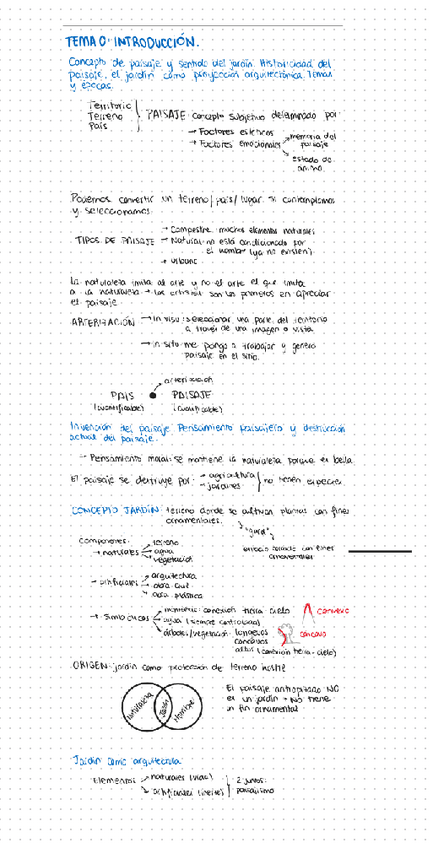 TEMA 0: INTRODUCCIÓN.
Concepto de paisaje y sentido del jardín. Historicidad del
paisaje, el jardín como proyección arquitectónica. Temas
y épocas.
Territorio
Terreno
País
PAISAJE: concepto subjetivo determinado por:
→ Factores estéticos
→ Factores emocionales
→ memoria del
paisaje
→ estado de
ánimo
Podemos convertir un terreno/país/lugar si contemplamos
y seleccionamos.
TIPOS DE PAISAJE
→ Campestre: muchos elementos naturales
→ Natural: no está condicionado por
el hombre (ya no existen)
→ urbano
La naturaleza imita al arte y no el arte el que imita
a la naturaleza → los artistas son los primeros en apreciar
el paisaje
ARTERIZACIÓN
→ In visu: seleccionar una parte del territorio
a través de una imagen o vista
→ in situ: me pongo a trabajar y genero
paisaje en el sitio.
arterización
PAÍS
PAISAJE
Invención del paisaje. Pensamiento paisajero y destrucción
actual del paisaje.
→ Pensamiento moral: se mantiene la naturaleza porque es bella
El paisaje se destruye por:
→ agricultura
→ jardines
no tienen
CONCEPTO JARDÍN: terreno donde se cultivan plantas con fines
ornamentales.
componentes:
→ naturales
→ terreno
→ agua
→ vegetación
→ artificiales
→ arquitectura
→ obra civil
→ obra plástica
→ simbólicos
→ montañas: conexión tierra cielo
→ agua (siempre controlada)
→ árboles/vegetación: longevos
convexo
cóncavo
altos (conexión tierra-cielo)
ORIGEN: jardín como protección de terreno hostil
Jardín
Hombre
El paisaje antropizado NO
es un jardín → NO tiene
un fin ornamental
Jardín como arquitectura
Elementos:
→ naturales
→ artificiales
2 juntos: